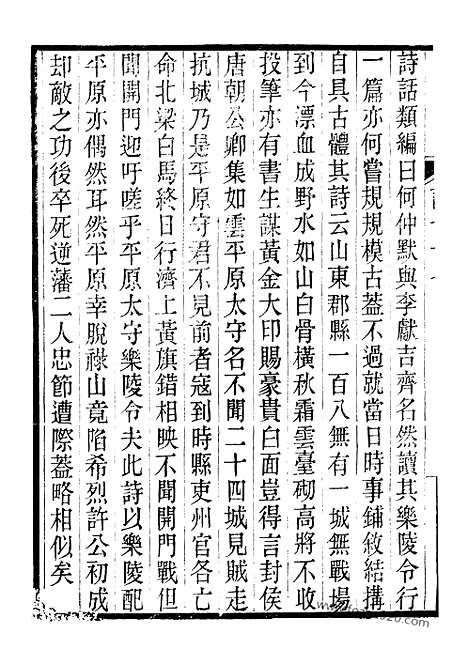 詩話類編曰何仲默與李獻吉齊名然讀其樂陵令行
一篇亦何嘗規規模古蓋不過就當日時事鋪敘結搆
自具古體其詩云山東郡縣一百八無有一城無戰場
到今漂血成野水如山白骨橫秋霜雲臺砌高將不收
投筆亦有書生謀黃金大印賜豪貴白面豈得言封侯
唐朝公卿集如雲平原太守名不聞二十四城見賊走
抗城乃是平原守君不見前者寇到時縣吏州官各亡
命北梁白馬終日行濟上黃旗錯相映不聞開門戰但
聞開門迎吁嗟乎平原太守樂陵令夫此詩以樂陵配
平原亦偶然耳然平原幸脫祿山竟陷希烈許公初成
却敵之功後卒死逆藩二人忠節遭際蓋略相似矣